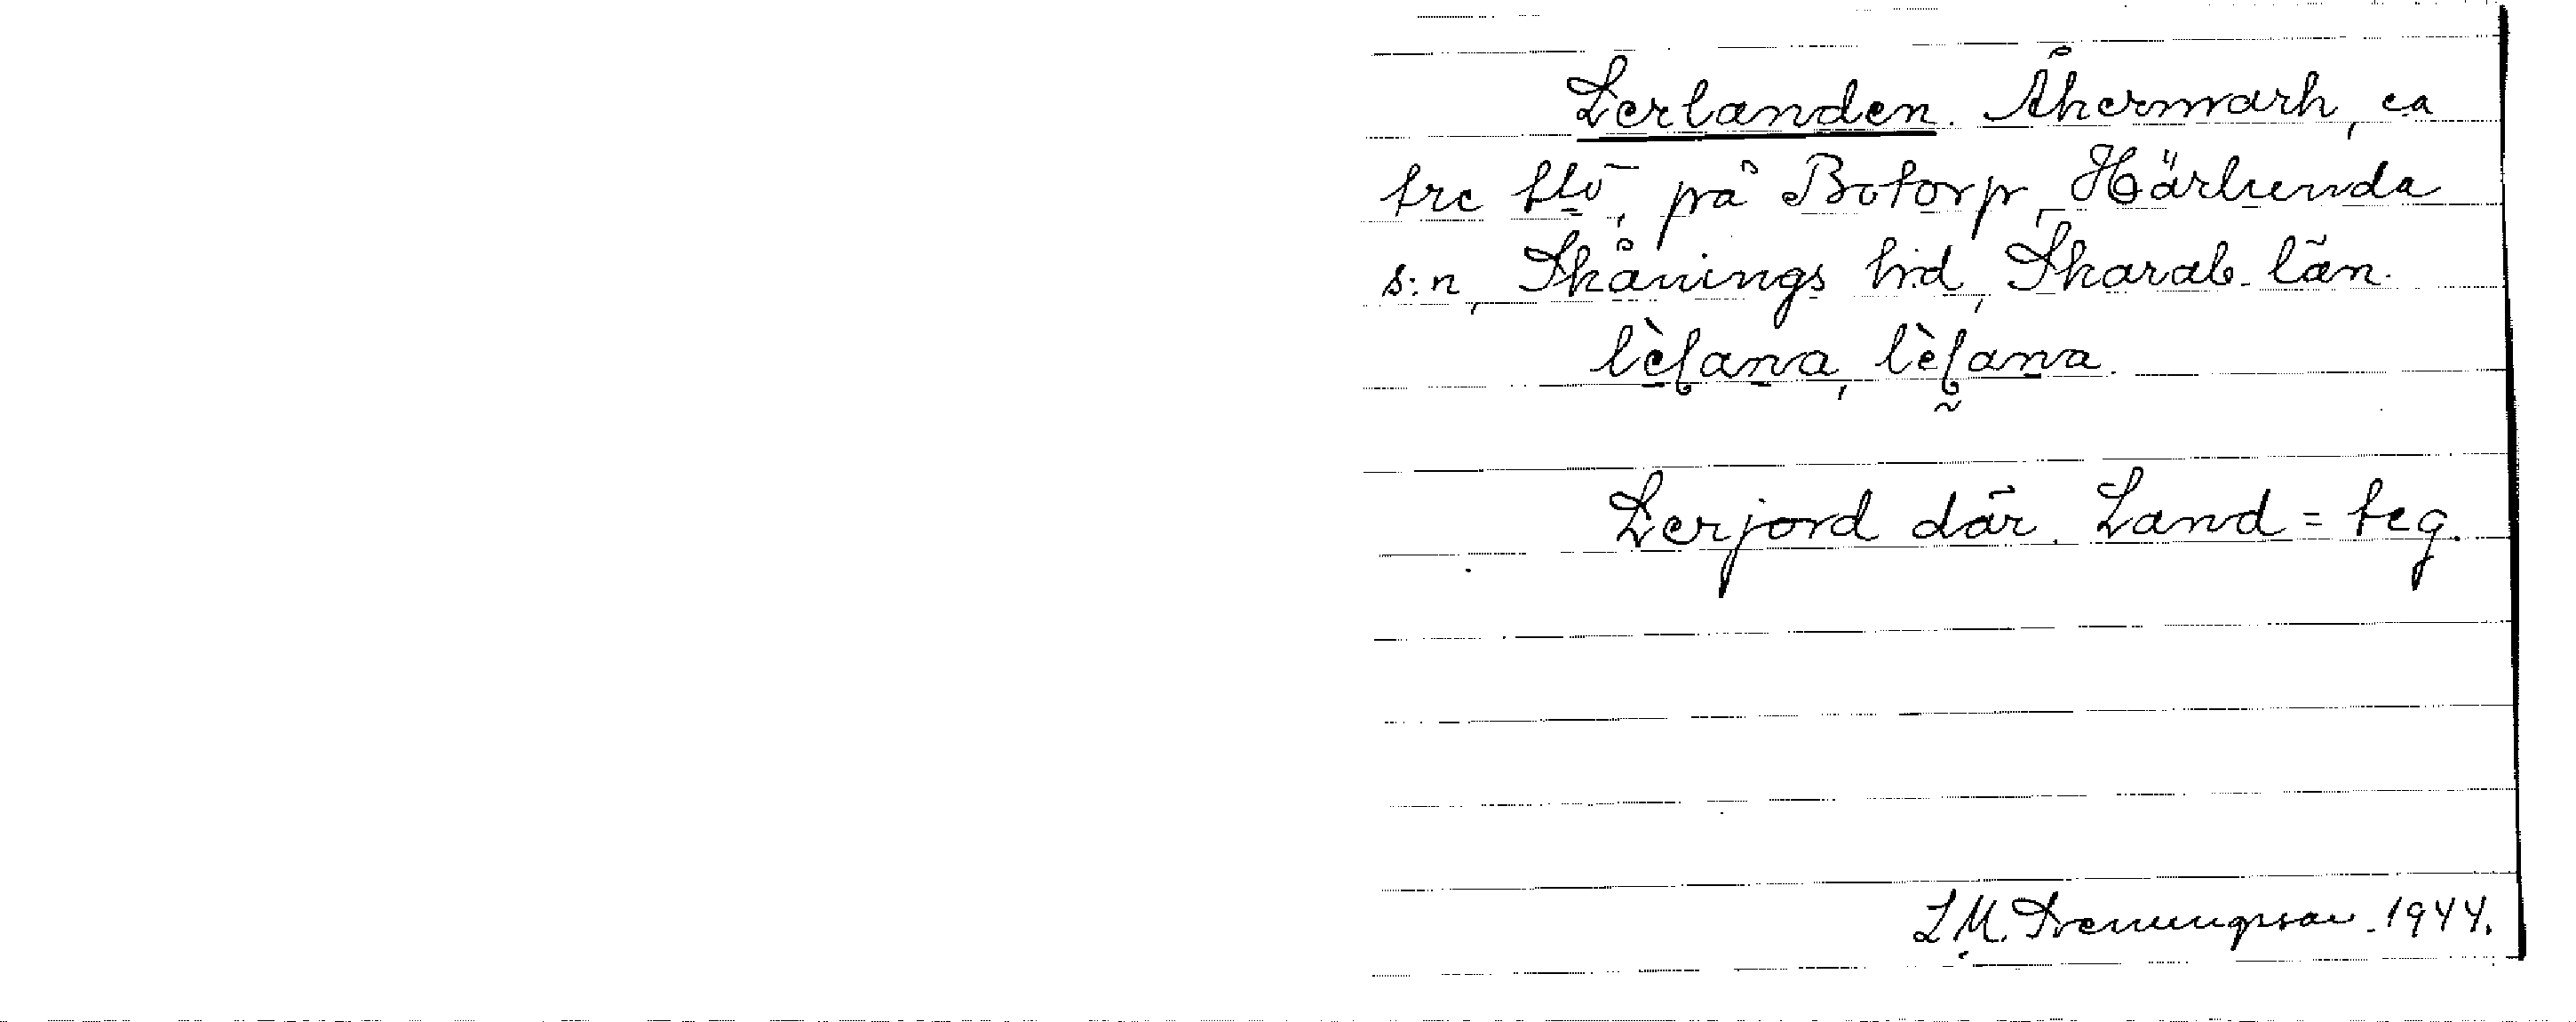 Lerlanden. Åkermark, ca
tre tld, på Botorp, Härlunda
s:n, Skånings hd, Skarab. län.
lèɽana, lèɽana.
Lerjord där. Land = teg.
L. M. Svenungsson 1944.